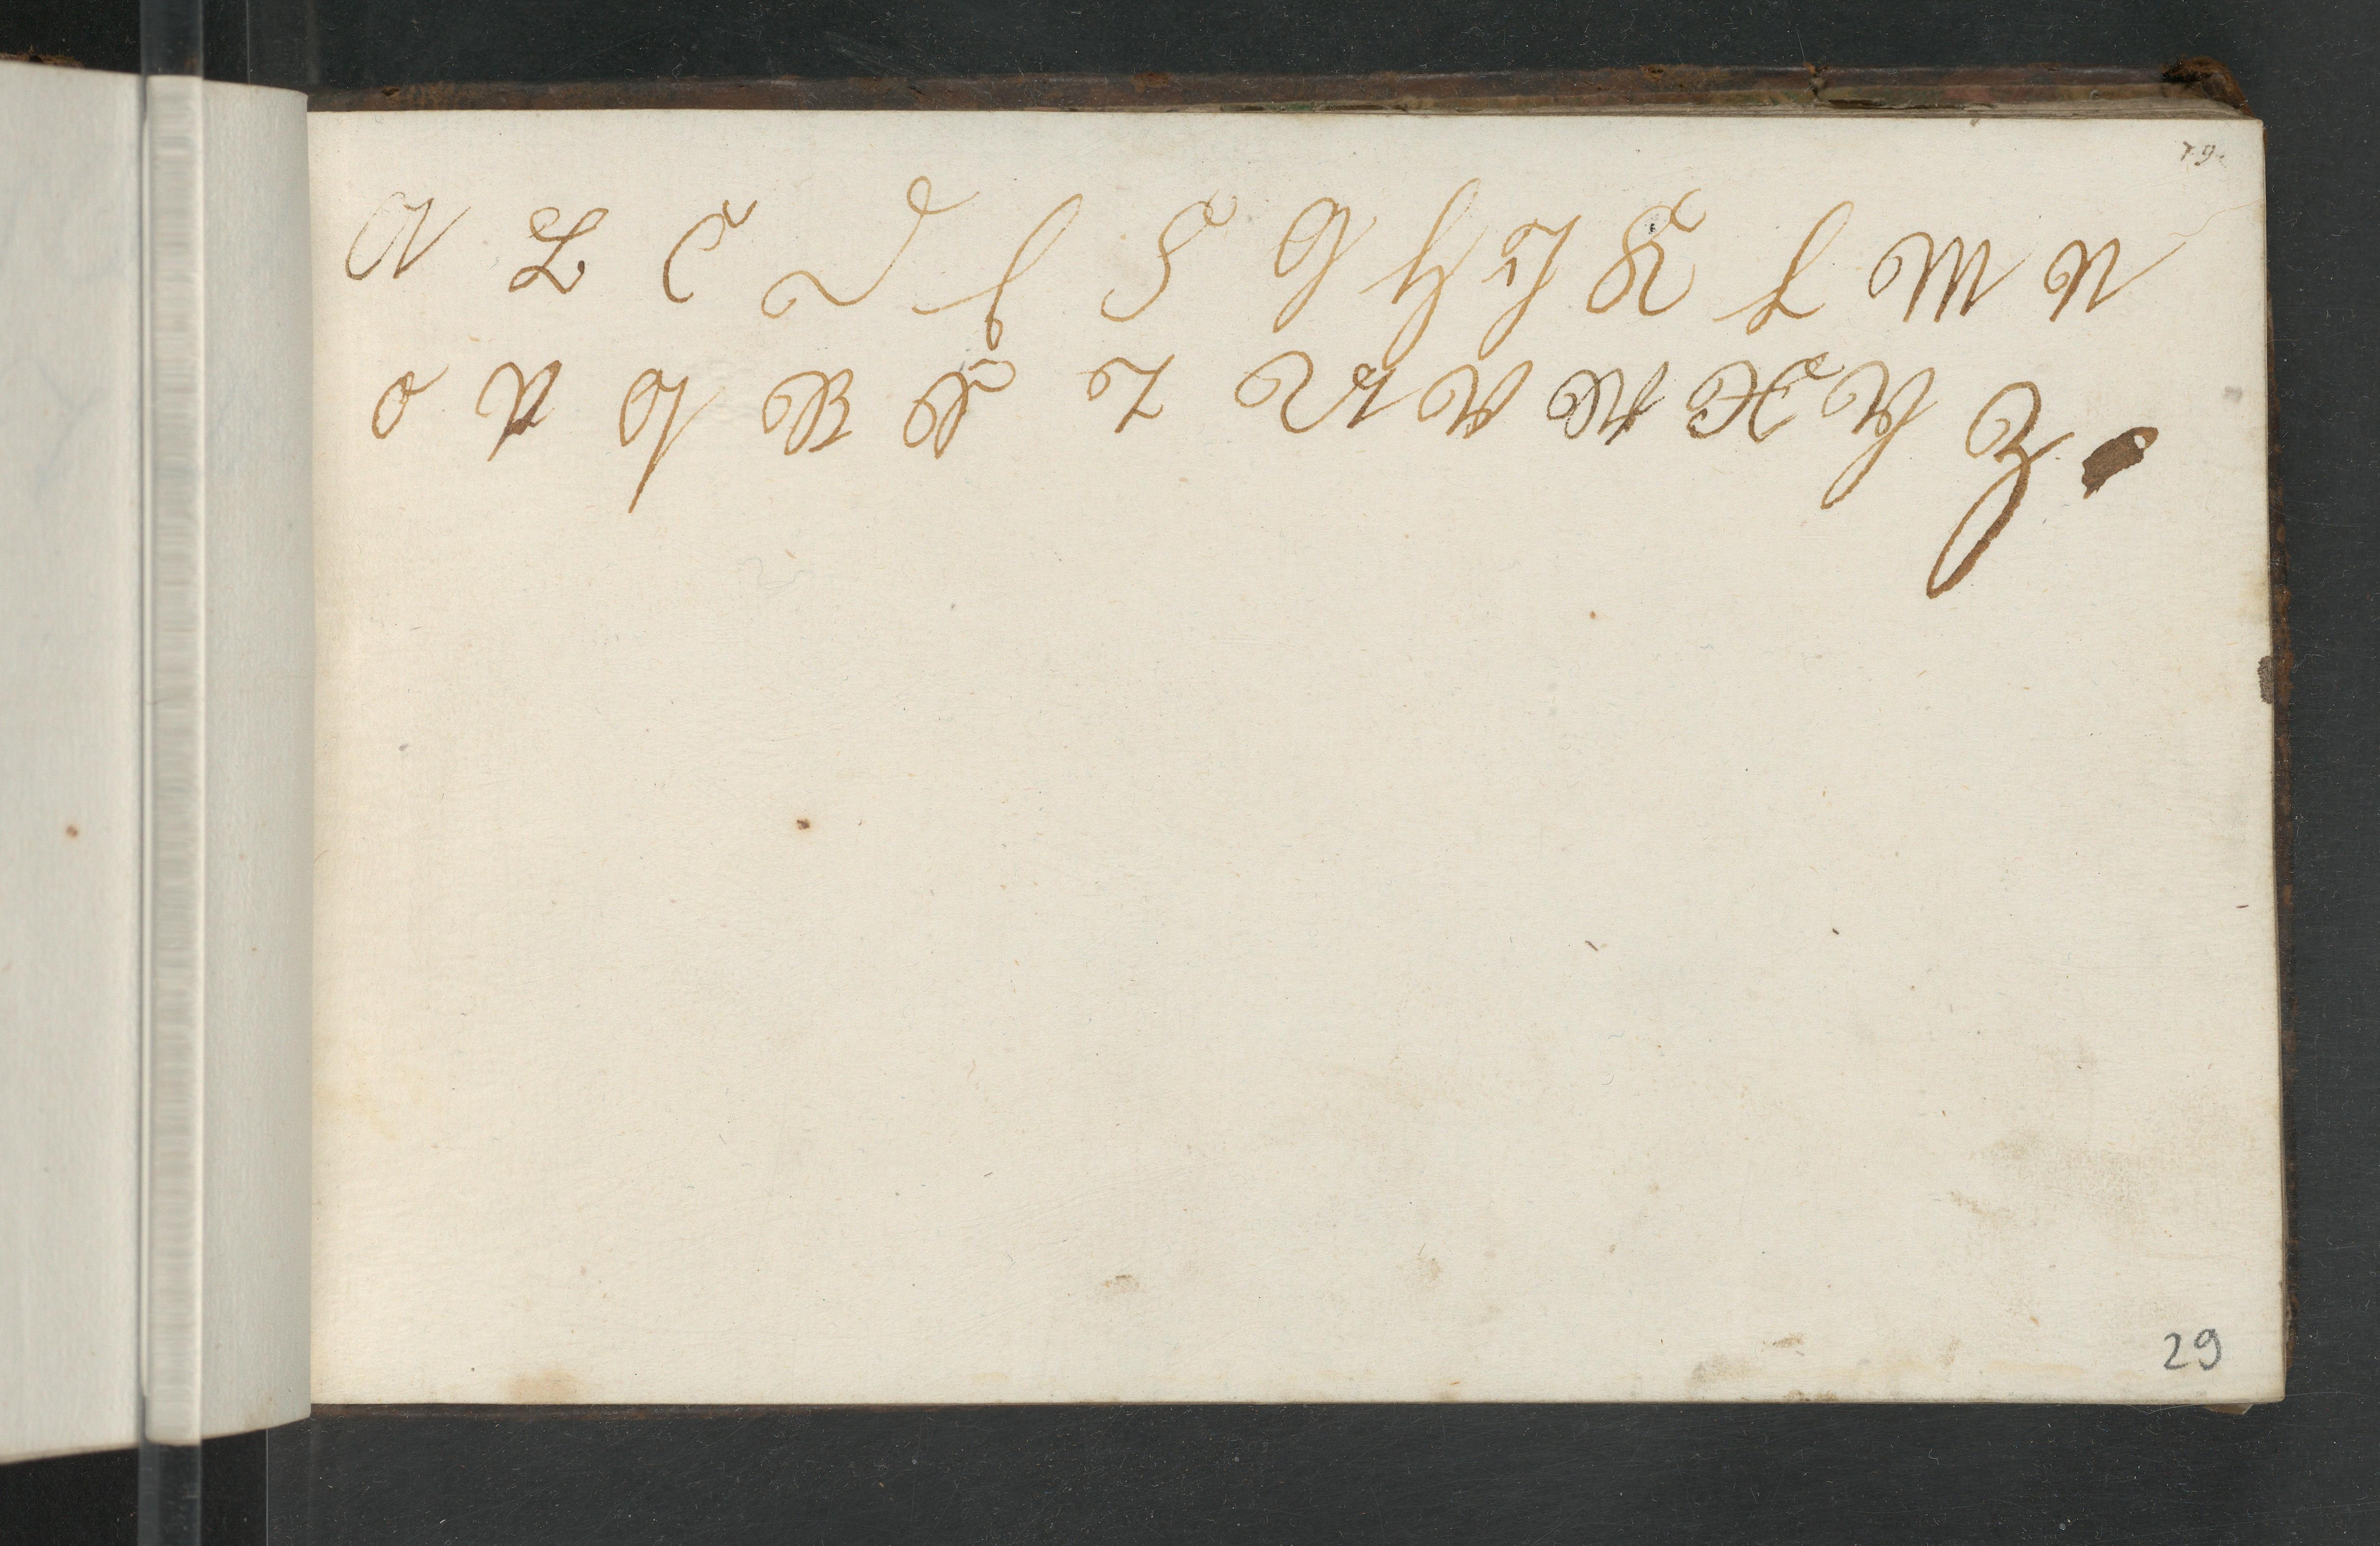 A B C D E F G H I K L M N
O P Q R S T U V W X Y Z
29